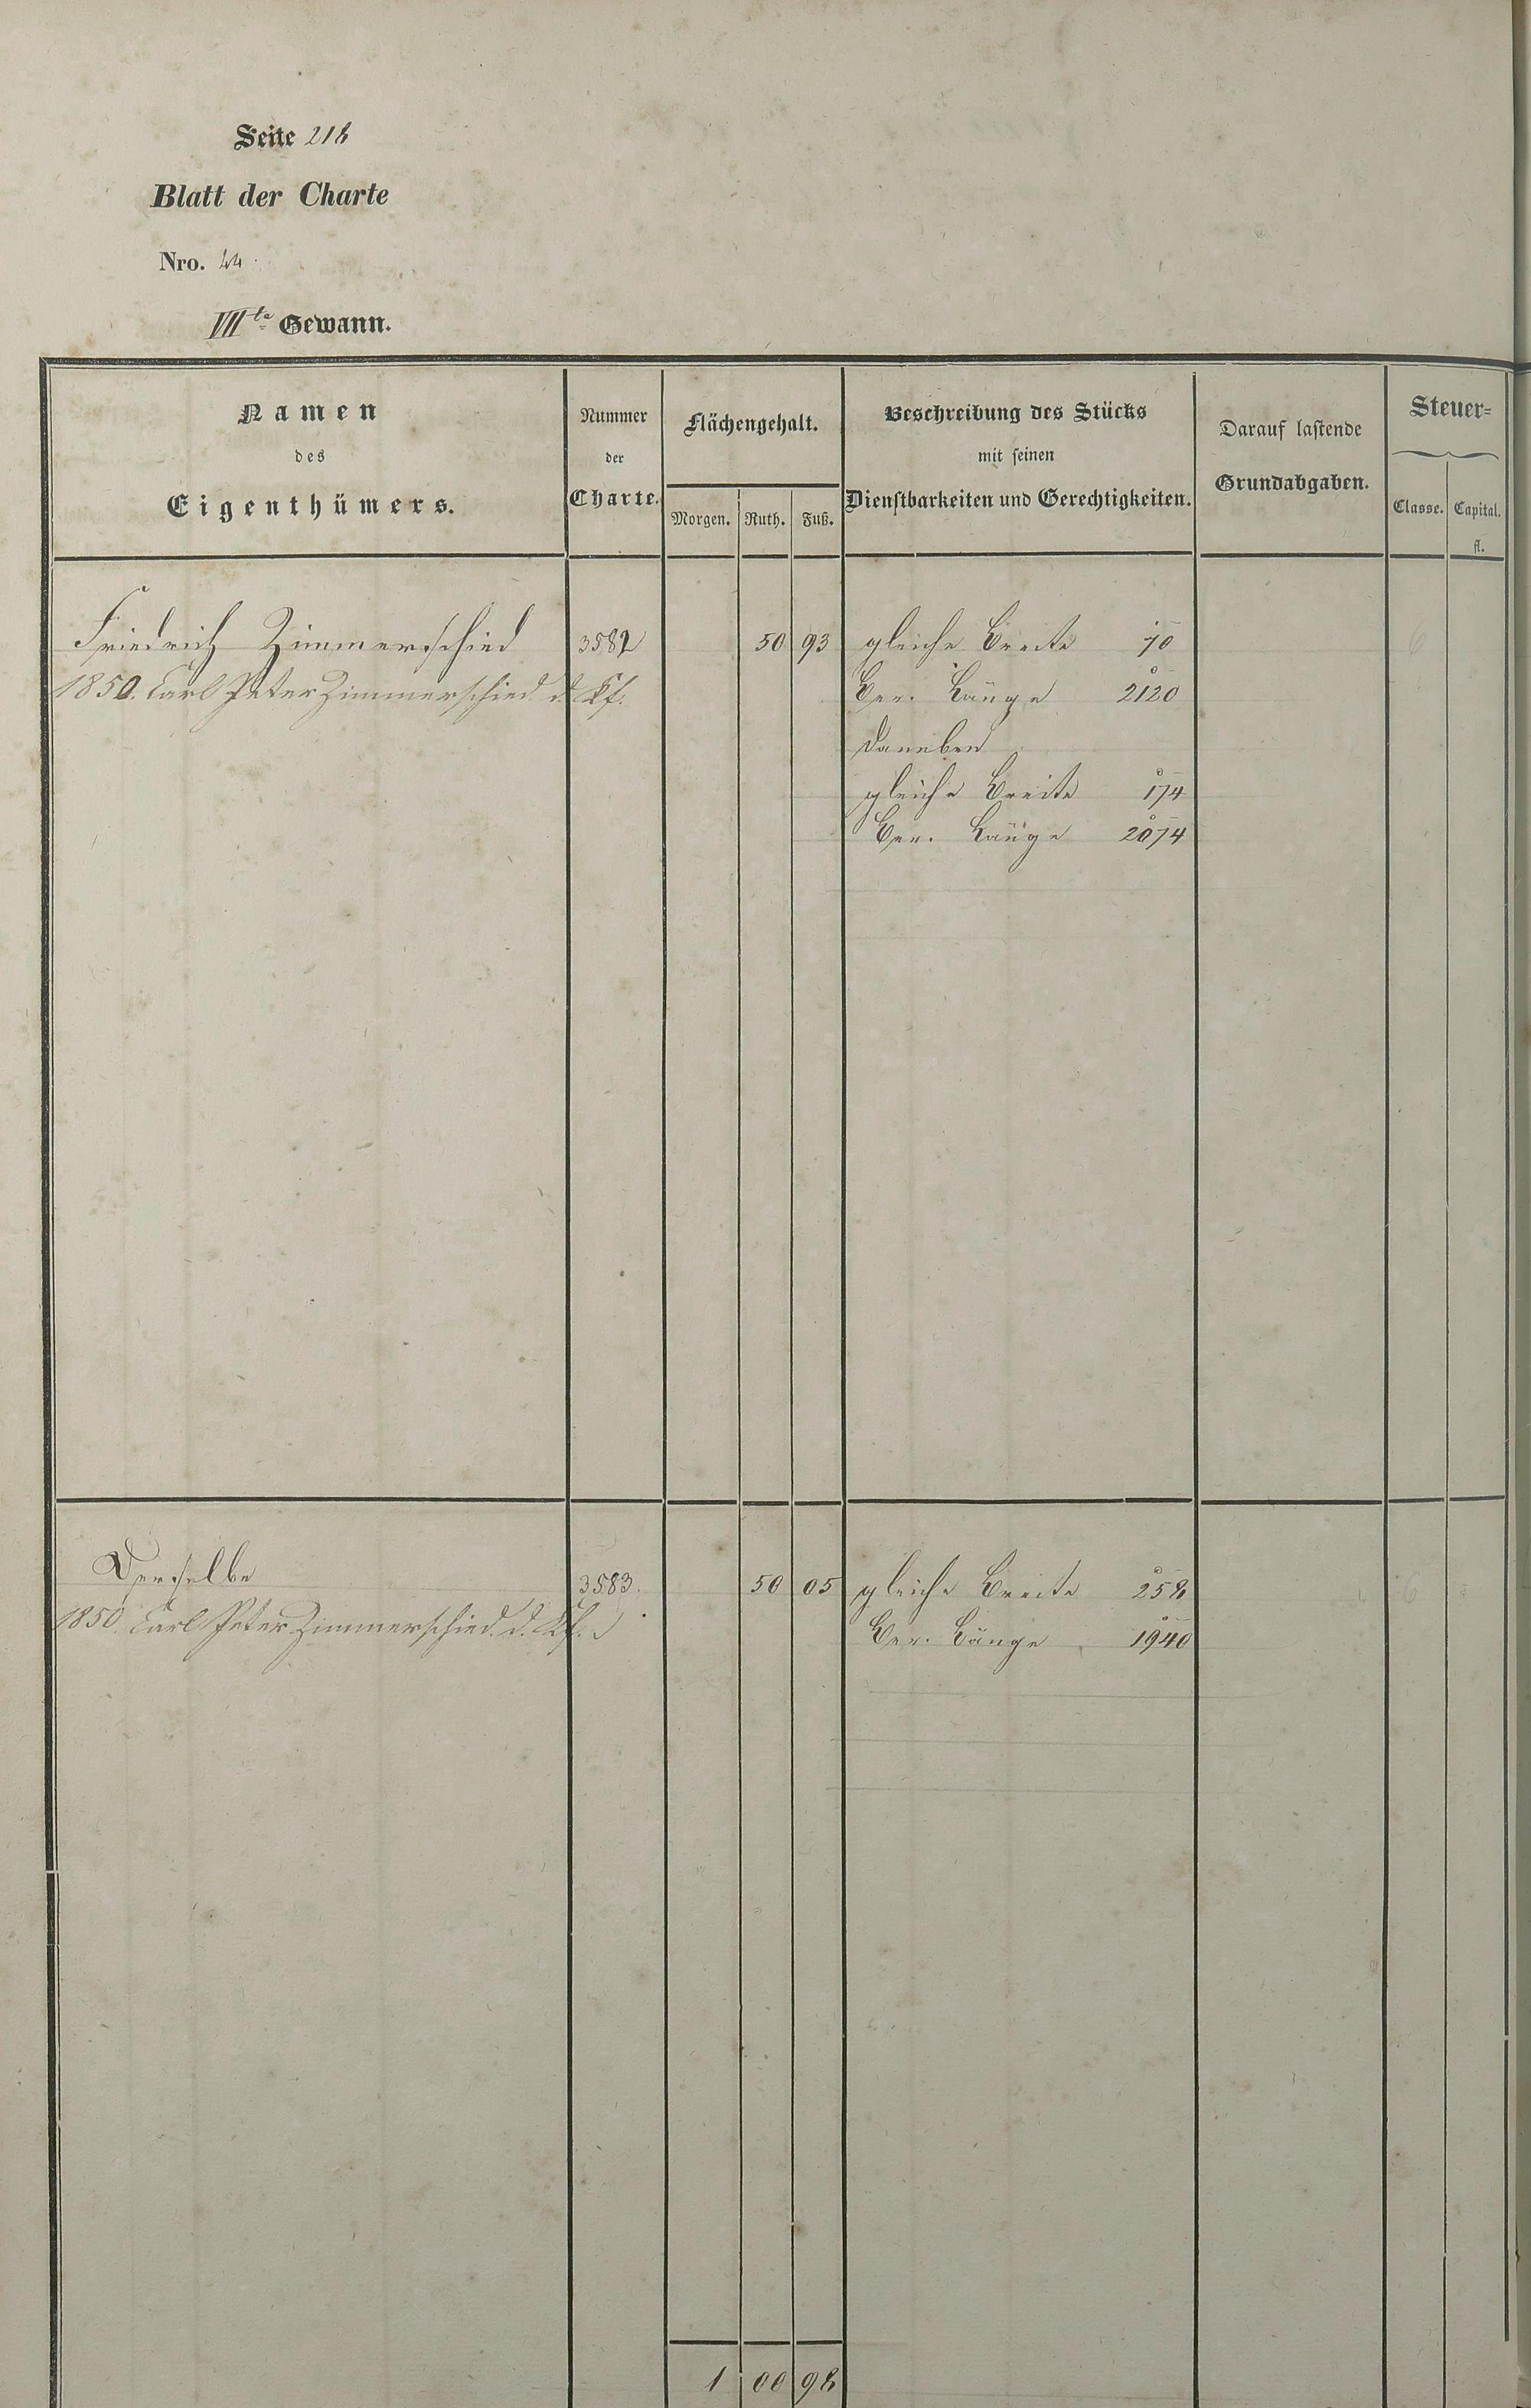 Seite 218
Blatt der Charte
Nro. 44.
VII te Gewann.
Namen
des
Eigenthümers.
Nummer
der
Charte.
Flächengehalt.
Morgen. Ruth. Fuß.
Beschreibung des Stücks
mit seinen
Dienstbarkeiten und Gerechtigkeiten.
Darauf lastende
Grundabgaben.
Steuer=
Classe. Capital.
fl.
Friedrich Zimmerschied 3582 50 93 gleiche Breite 70 6
1850. Carl Peter Zimmerschied d. Kf. Ber. Länge 2120
daneben
gleiche Breite 174
Ber. Länge 2074
Derselbe 3583. 50 05 gleiche Breite 258 6
1850. Carl Peter Zimmerschied d. Kf. Ber. Länge 1940
1 00 98